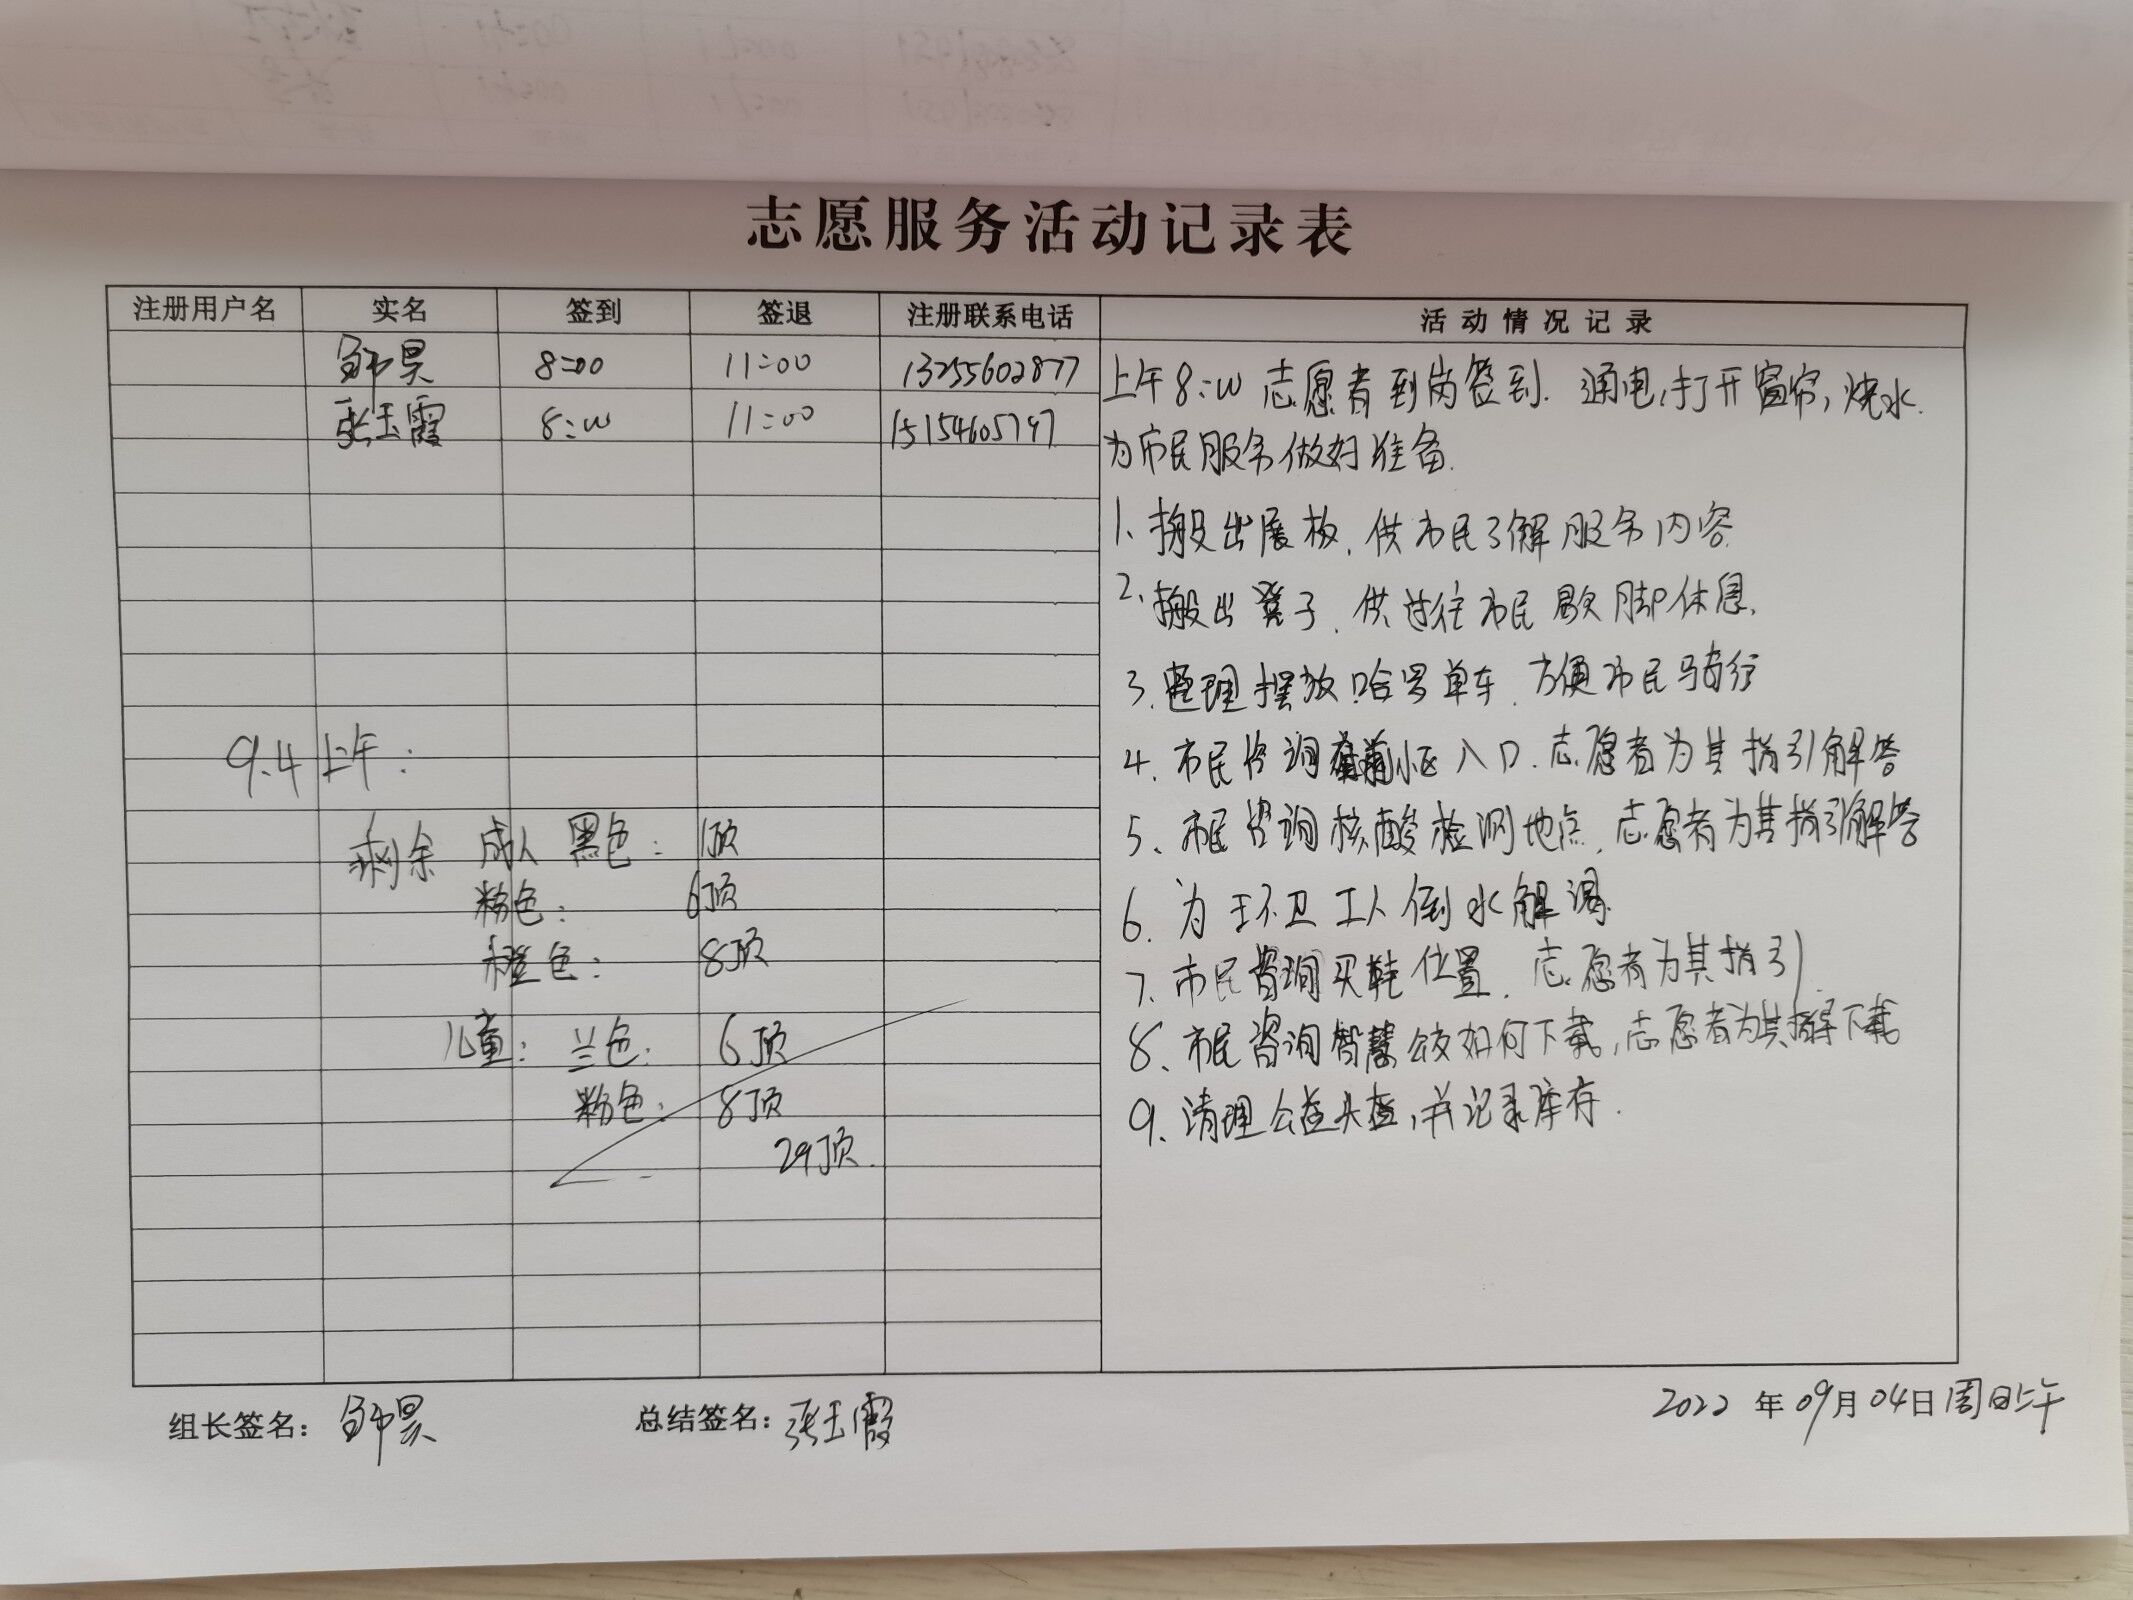 志愿服务活动记录表
注册用户名 实名 签到 签退 注册联系电话 活动情况记录
昊 8:00 11:00 13255602877
张玉霞 8:00 11:00 15154605797
上午8:00志愿者到岗签到.通电,打开窗帘,烧水.
为市民服务做好准备.
1、搬出展板.供市民了解服务内容
2、搬出凳子.供过往市民歇脚休息.
3.整理摆放哈罗单车.方便市民骑行
4.市民咨询小区入口.志愿者为其指引解答
5、市民咨询核酸检测地点.志愿者为其指引解答
6.为环卫工人倒水解渴.
7.市民咨询买鞋位置.志愿者为其指引.
8.市民咨询智慧公交如何下载,志愿者为其指导下载
9.清理公益头盔,并记录库存.
9.4上午:
剩余 成人 黑色: 1顶
粉色: 6顶
橙色: 8顶
儿童: 兰色: 6顶
粉色: 8顶
29顶.
组长签名: 昊 总结签名: 张玉霞 2022年09月04日周日上午